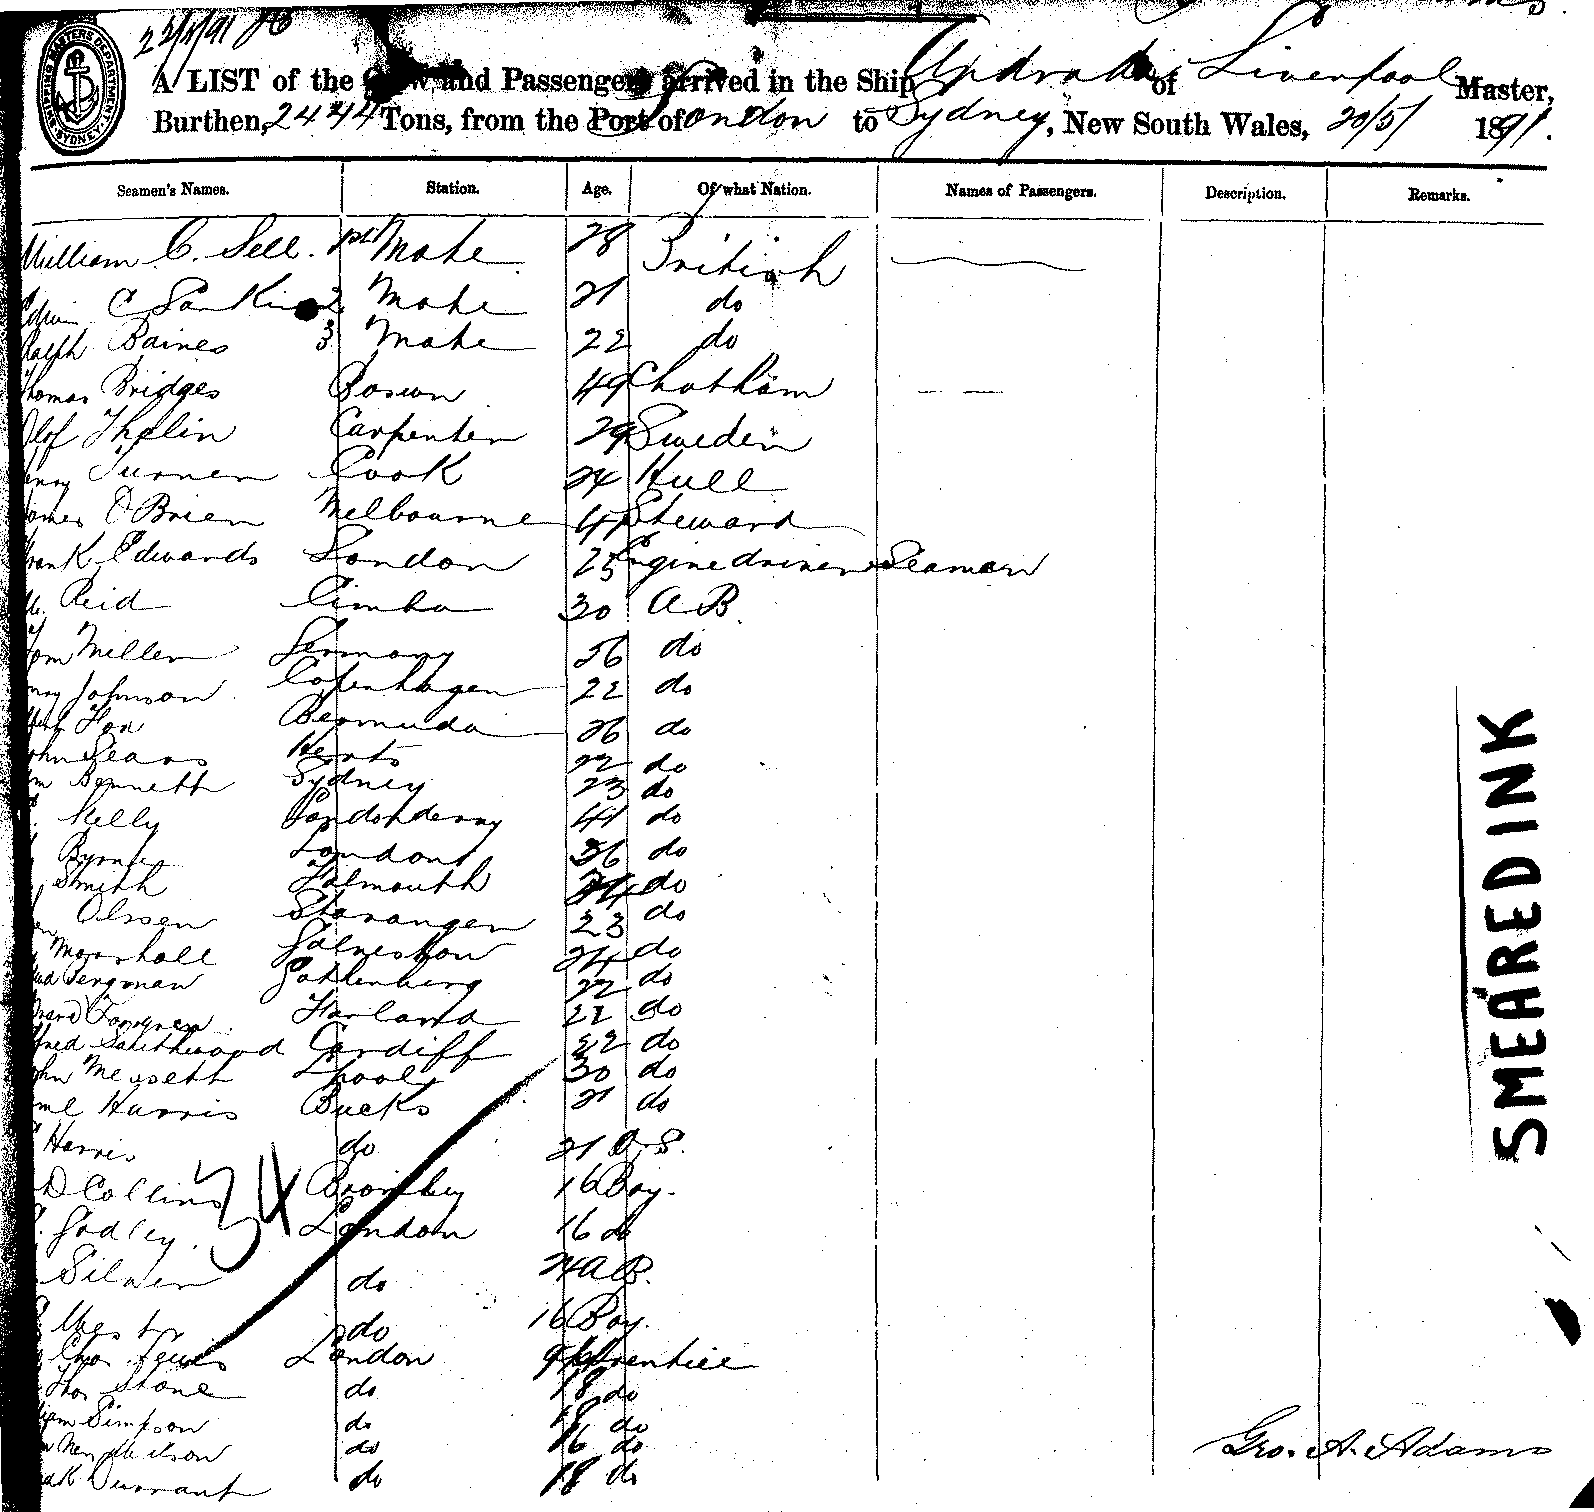 22/5/91
A LIST of the Crew and Passengers arrived in the Ship of Liverpool Master,
Burthen, 2444 Tons, from the Port of London to Sydney, New South Wales, 20/5/ 1891.
Seamen's Names. Station. Age. Of what Nation. Names of Passengers. Description. Remarks.
William C. Sell. 1st Mate 28 British
C 2 Mate 21 do
Ralph Baines 3 Mate 22 do
Thomas Bridges Bosun 49 Chatham
Olof Thelin Carpenter 29 Sweden
Turner Cook 24 Hull
James O'Brien Melbourne Steward
Frank Edwards London 25 Enginedriver Seaman
Reid 30 A B
Tom Miller Germany 36 do
Johnson Copenhagen 22 do
Bermuda 26 do
John Sears 22 do
Bennett Sydney 23 do
Kelly Londonderry 41 do
Byrne London 36 do
Smith Falmouth do
Olsen Stavanger 23 do
Marshall Galveston 24 do
Bergman Gothenberg 22 do
22 do
Cardiff 22 do
John Lpool 30 do
Harris Bucks 21 do
Harris do 21 O.S.
D Collins Bromley 16 Boy.
Godley. London 16 do
34
Silver do 24 A B.
West do 16 Boy.
Chas Lewis London Apprentice
Thos Stone do 18 do
Simpson do 18 do
do 16 do
Durrant do 18 do
Geo. A. Adams
SMEARED INK